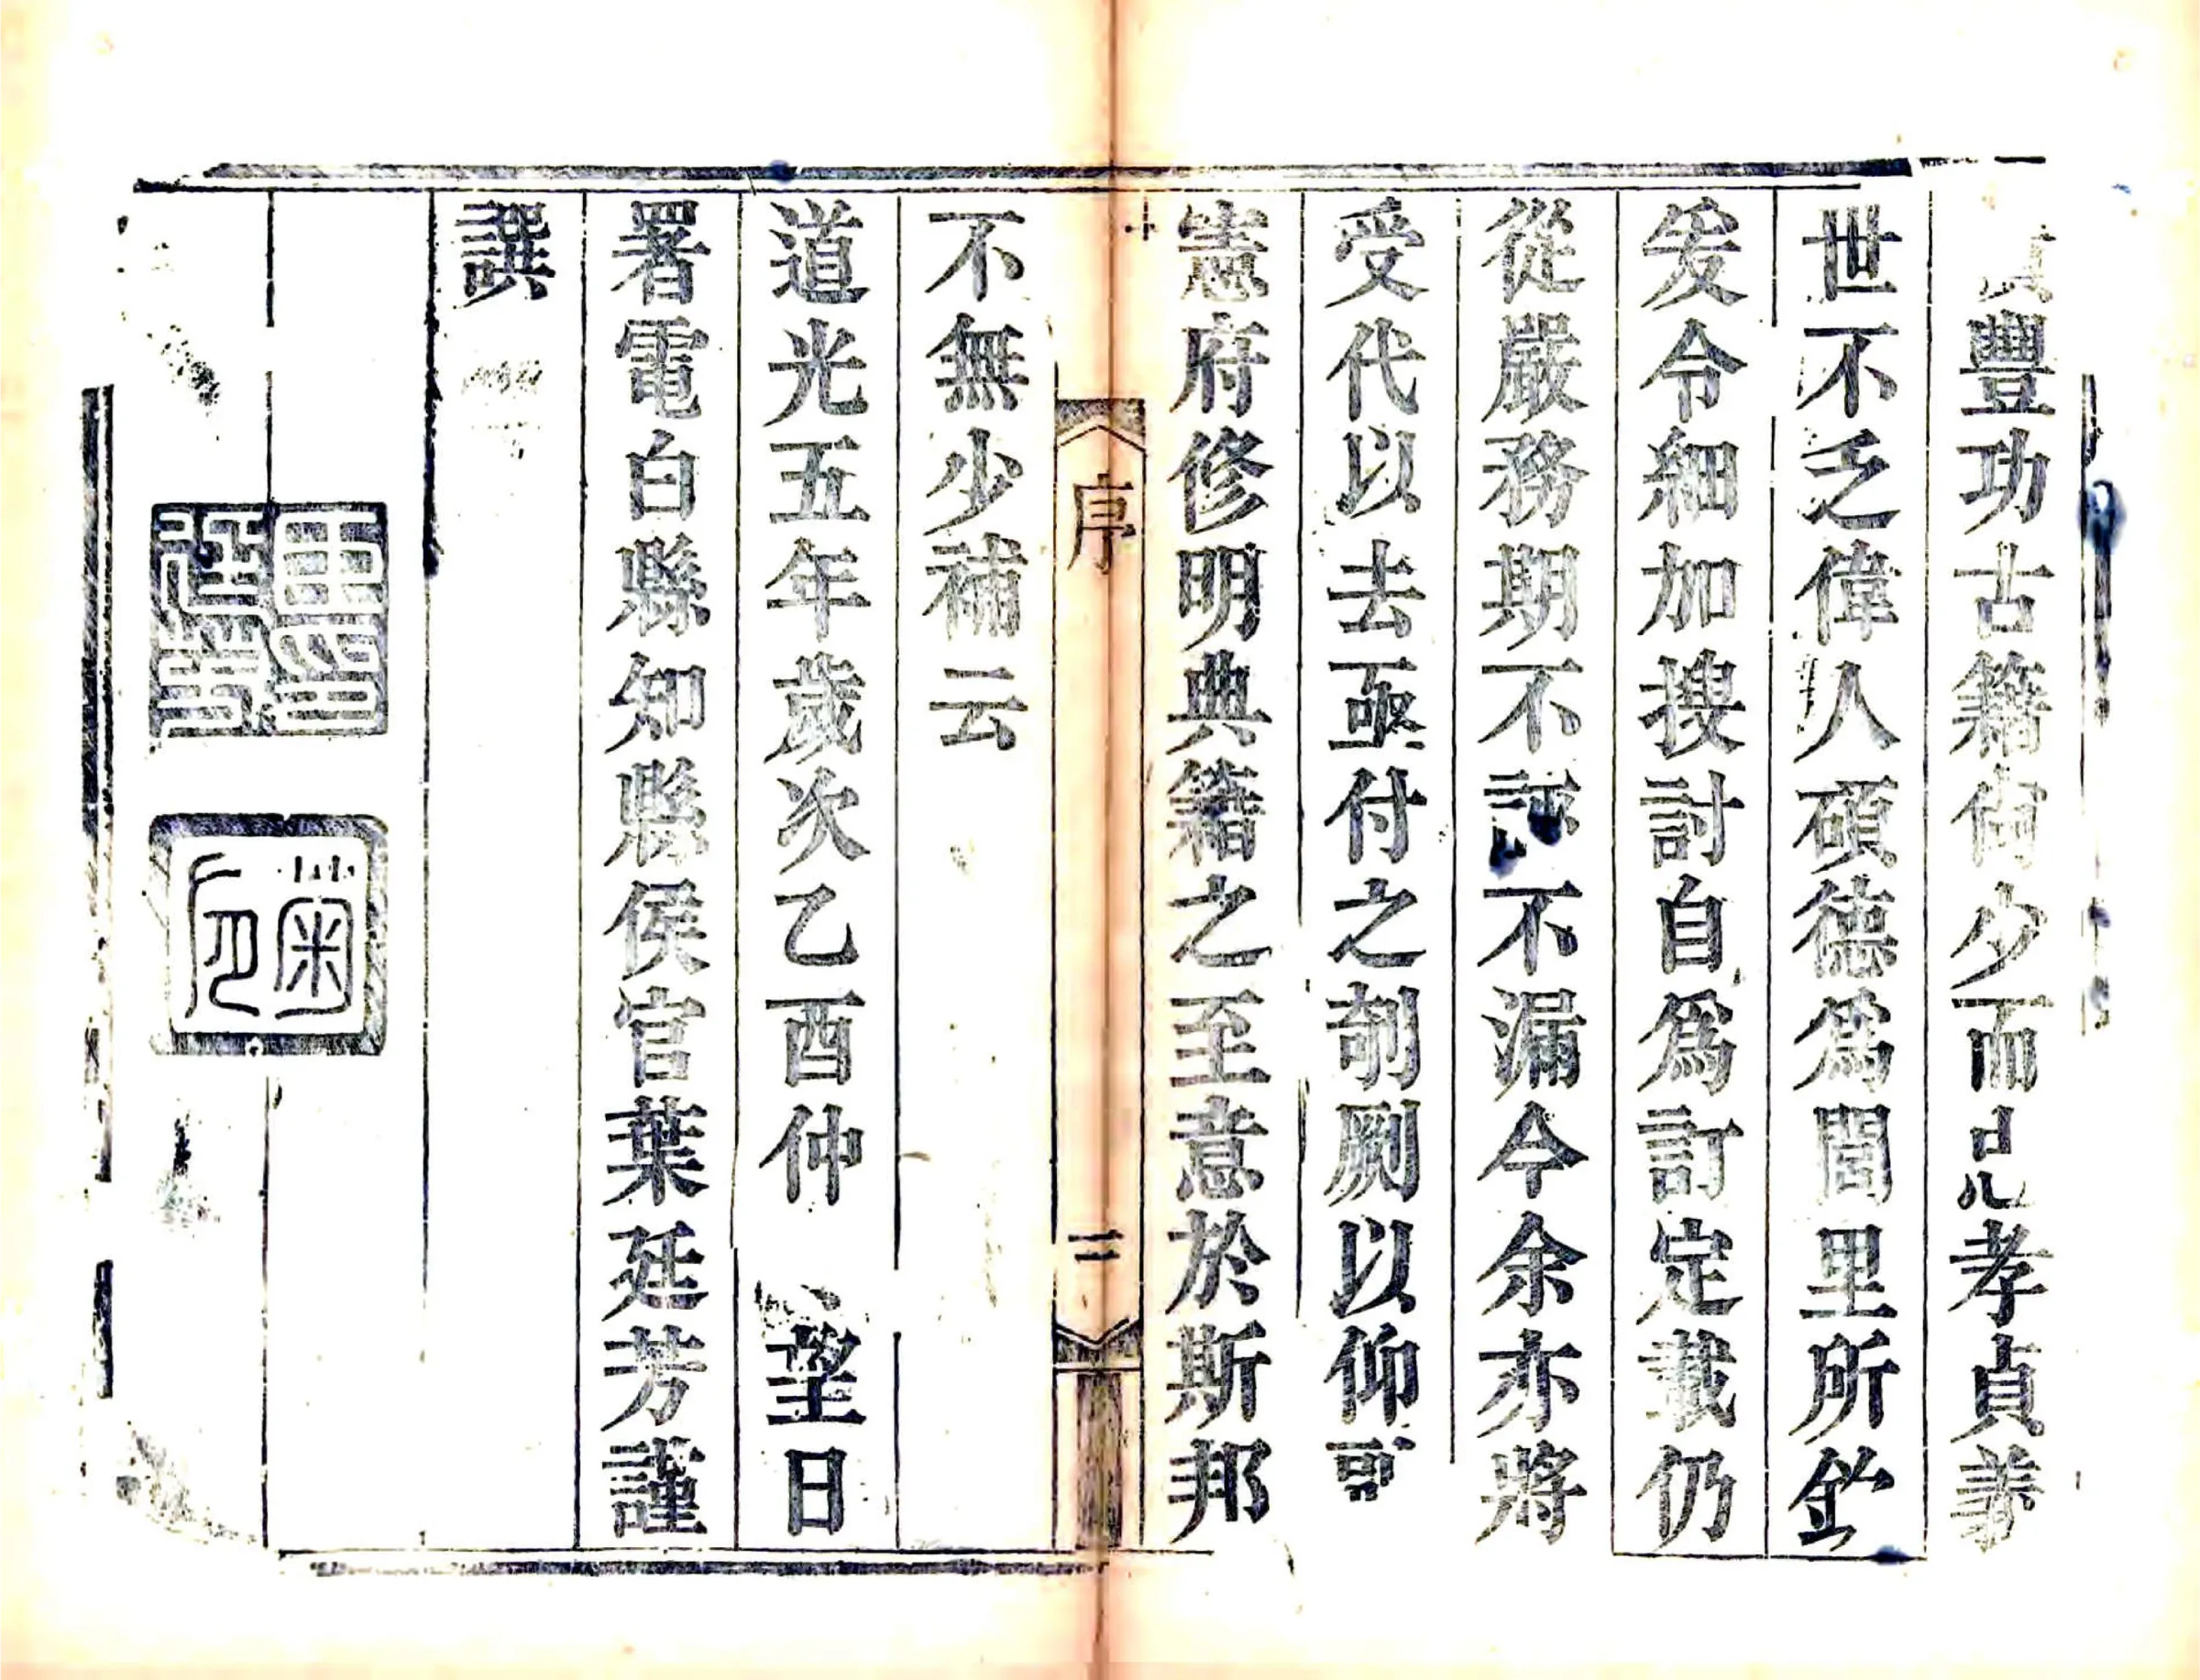 豐功古籍少而孝貞
世不乏偉人碩德爲閭里所
爰令細加搜討自爲訂定載仍
從嚴務期不不漏今余亦將
受代以去亟付之剞劂以仰
憲府修明典籍之至意於斯邦
序
三
不無少補云
道光五年歲次乙酉仲望日
署電白縣知縣侯官葉廷芳謹
譔